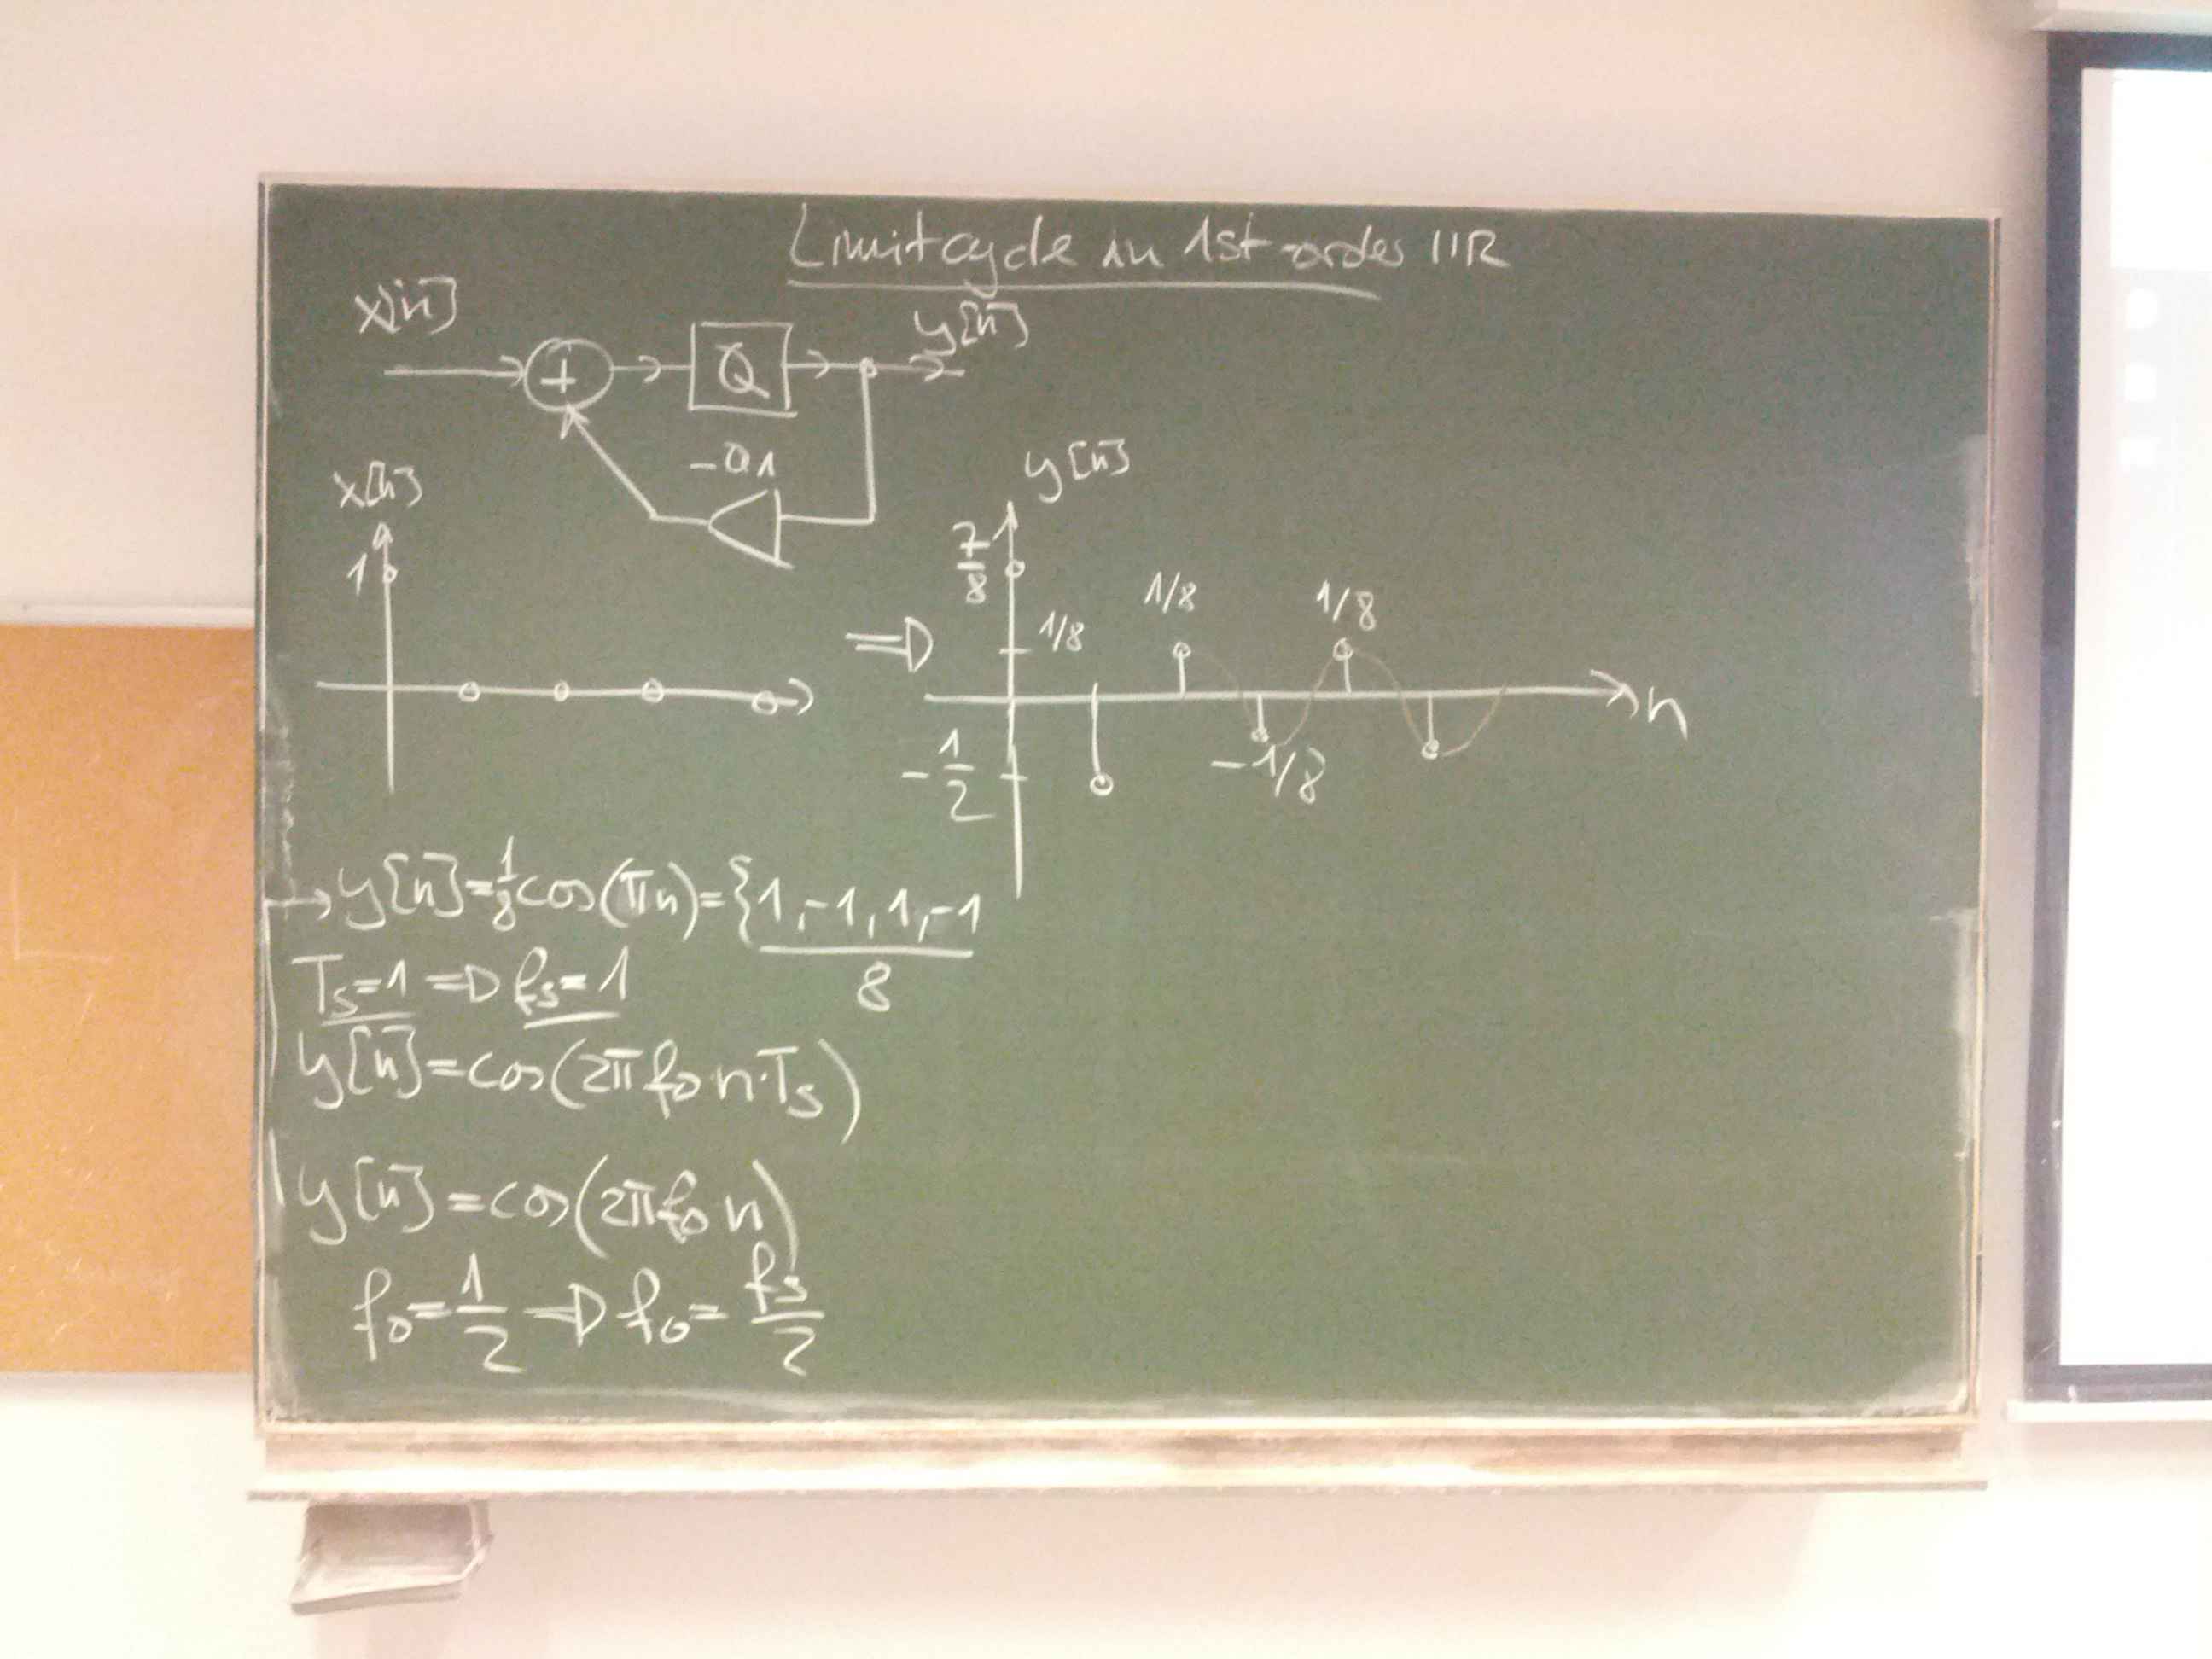 Limit cycle in 1st-order IIR
x[n]
+
Q
y[n]
-a1
x[n]
1
⇒
y[n]
7/8
1/8
1/8
1/8
-1/2
-1/8
n
→ y[n]=1/8 cos(πn)={1,-1,1,-1 / 8
Ts=1 ⇒ fs=1
y[n]=cos(2π f0·n·Ts)
y[n]=cos(2πf0 n)
f0=1/2 ⇒ f0=fs/2